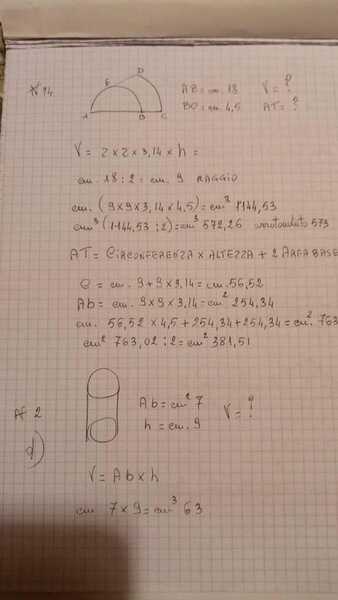 N 14
E D A B C
AB = cm. 18 V = ?
BC = cm. 4,5 AT = ?
V = 2 x 2 x 3,14 x h =
cm. 18 : 2 = cm. 9 RAGGIO
cm. (9 x 9 x 3,14 x 4,5) = cm³ 1144,53
cm³ (1144,53 : 2) = cm³ 572,26 arrotondato 573
AT = CIRCONFERENZA x ALTEZZA + 2 AREA BASE
C = cm. 9 + 9 x 3,14 = cm. 56,52
Ab = cm. 9 x 9 x 3,14 = cm² 254,34
cm. 56,52 x 4,5 + 254,34 + 254,34 = cm². 763
cm² 763,02 : 2 = cm² 381,51
N 2
d)
Ab = cm² 7 V = ?
h = cm. 9
V = Ab x h
cm 7 x 9 = cm³ 63